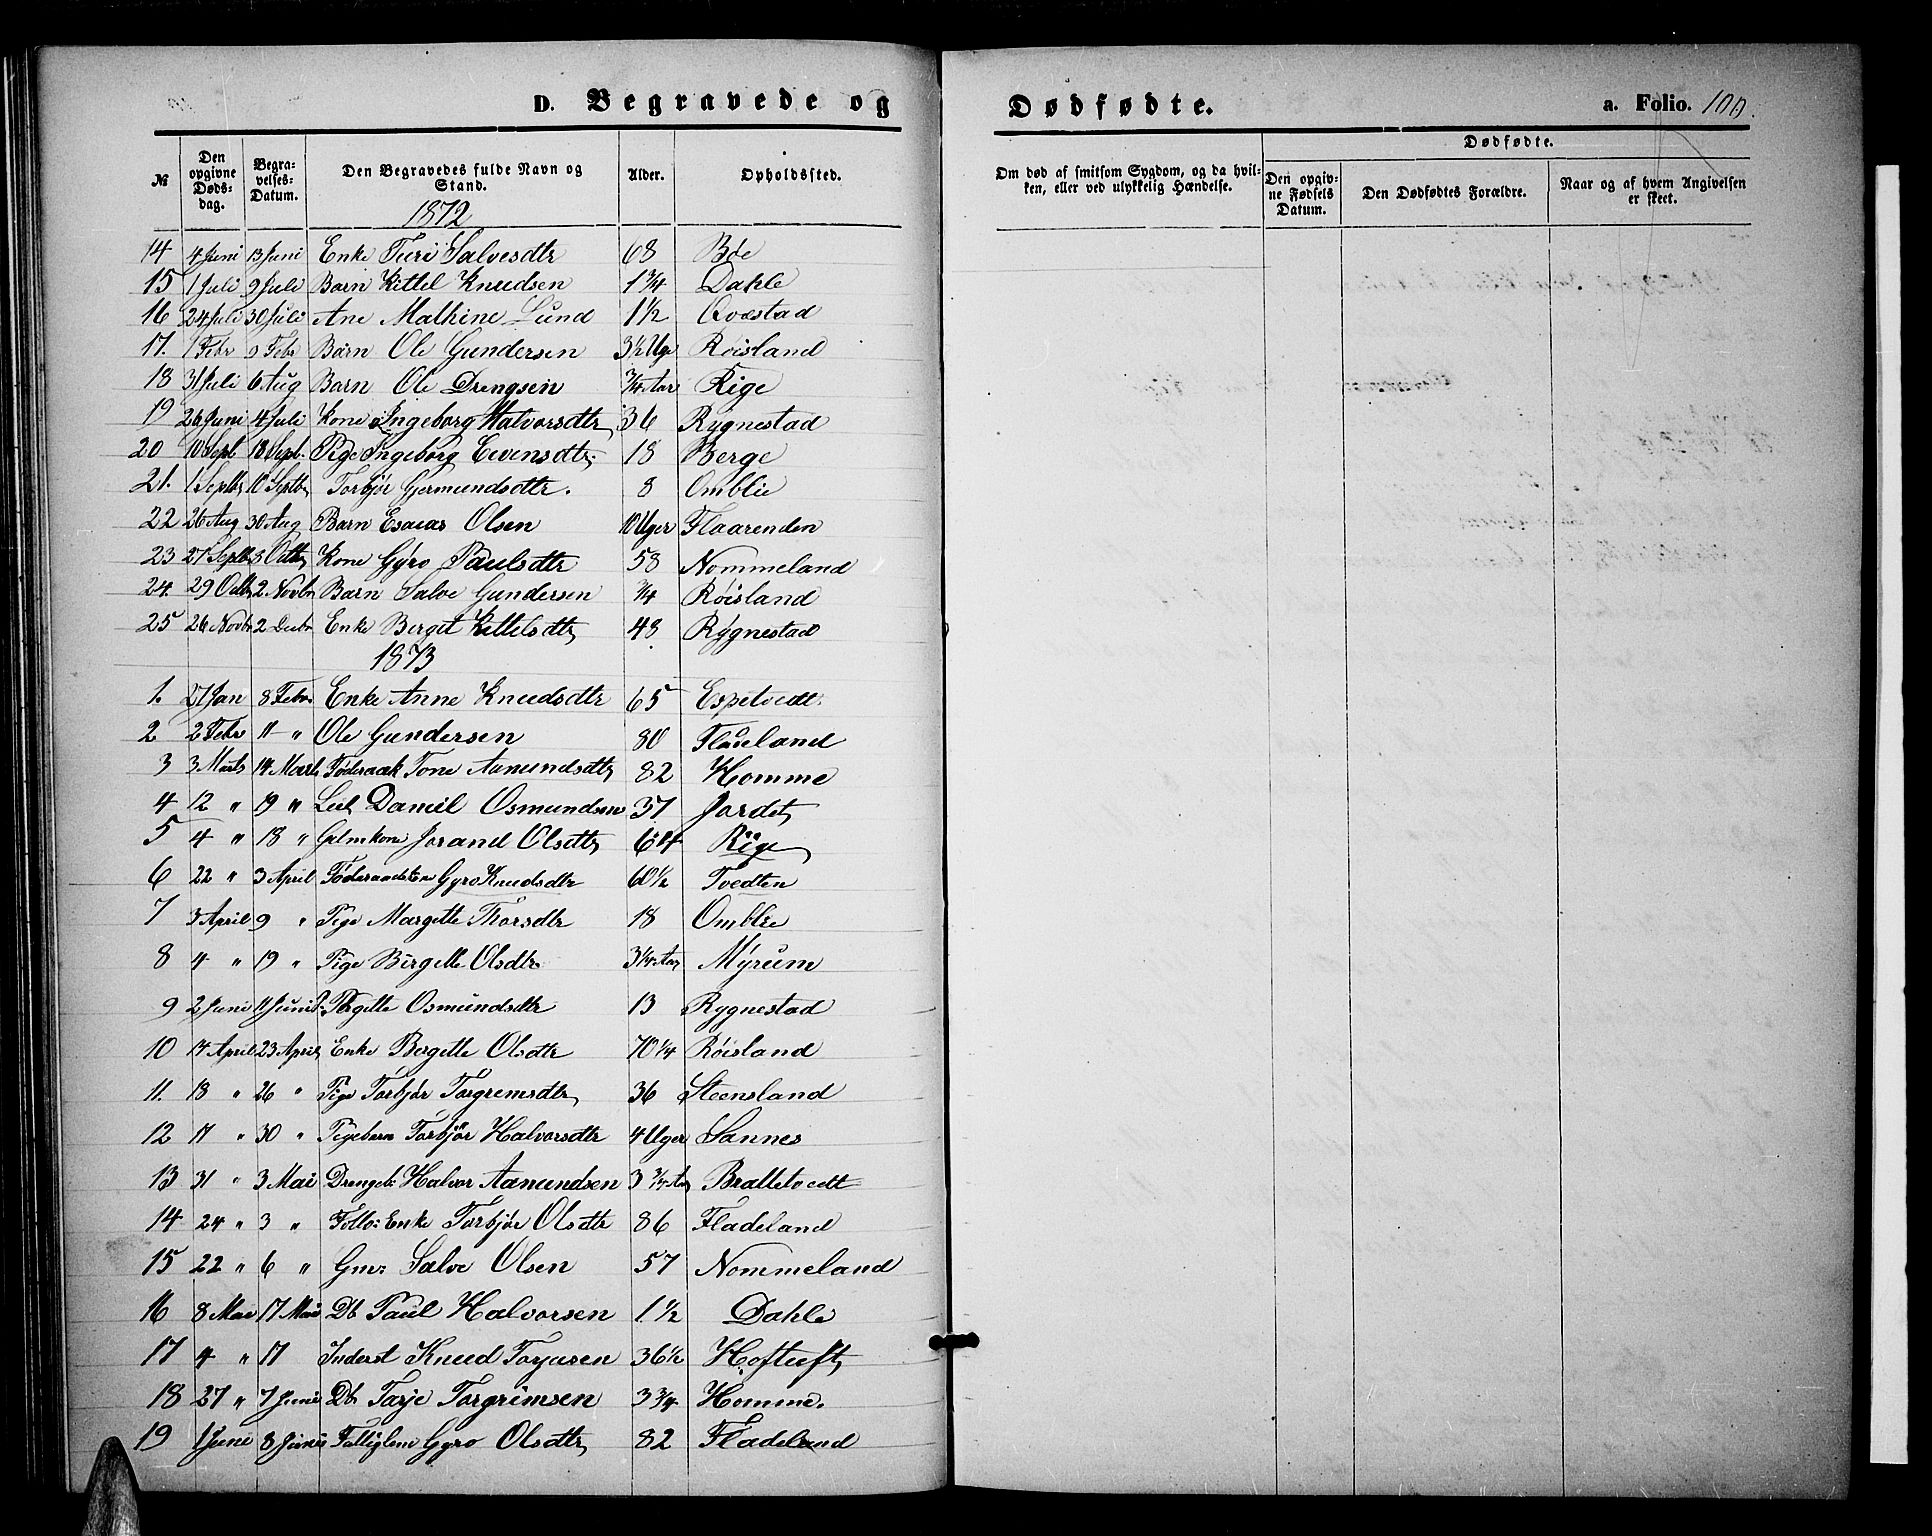 D. Begravede og
Dødfødte.
a. Folio. 100.
№ | Den opgivne Døds-dag. | Begra-velses-Datum. | Den Begravedes fulde Navn og Stand. | Alder. | Opholdssted.
Om død af smitsom Sygdom, og da hvil-ken, eller ved ulykkelig Hændelse. | Dødfødte. | Den opgiv-ne Fødsels Datum. | Den Dødfødtes Forældre. | Naar og af hvem Angivelsen er skeet.
1872
14 4 Juni 13 Juni Enke Turi Salvesdtr 68 Bøe
15 1 Juli 9 Juli Barn Kittel Knudsen 1 3/4 Dahle
16 24 Juli 30 Juli Ane Mathine Lund 1 1/2 Qvæstad
17. 1 Febr 9 Febr Barn Ole Gundersen 3 1/2 Uge Røisland
18 31 Juli 6 Aug Barn Ole Drengsen 3/4 Aar Rige
19 26 Juni 4 Juli Kone Ingeborg Halvorsdtr 36 Rygnestad
20 10 Sept 18 Sept. Pige Ingeborg Evensdtr. 18 Berge
21. 1 Septbr 10 Septbr Torbjør Gjermundsdtr. 8 Omblie
22 26 Aug 30 Aug Barn Esaias Olsen 10 Uger Flaarenden
23 27 Septbr 3 Octbr Kone Gyro Paulsdtr 58 Nommeland
24. 29 Octbr 2 Novbr Barn Salve Gundersen 3/4 Røisland
25 26 Novbr 2 Decbr Enke Berget Kittelsdtr 48 Rygnestad
1873
1. 27 Jan 8 Febr Enke Anne Knudsdtr 65 Espetvedt.
2 2 Febr 11 " Ole Gundersen 80 Flaieland
3 3 Marts 14 Marts Føderaak Tone Aamundsdtr 82 Homme
4 12 " 19 " Daniel Osmundsen 37 Jordet
5 4 " 18 " Gelmkone Jorand Olsdtr Rige
6 22 " 3 April Gyro Knudsdtr 60 1/2 Tvedten
7 3 April 9 " Pige Margette Thorsdtr 18 Omblie
8 4 " 19 " Pige Birgette Olsdtr 3 1/4 Aar Myrum
9 2 Juni 11 Juni Osmundsdtr 13 Rygnestad
10 14 April 23 April Enke Bergette Olsdtr 70 1/4 Røisland
11. 18 " 26 " Pige Torbjør Torgremsdtr 36 Steensland
12 17 " 30 " Pigebarn Torbjør Halvorsdtr 4 Uger Sannes
13 31 " 3 Mai Drengeb: Halvor Aamundsen 3 3/4 Aar Brattetvedt
14 24 " 3 " Enke Torbjør Olsdtr 86 Fladeland
15 22 " 6 " Gmr Salve Olsen 57 Nommeland
16 8 Mai 17 Mai Db Paul Halvorsen 1 1/2 Dahle
17 4 " 17 Inderst Knud Torjusen 36 1/2 Hoftuft
18 27 " 7 Juni Db Tarje Torgrimsen 3 3/4 Homme.
19 1 Juni 8 Juni Fattiglem Gyro Olsdtr 82 Fladeland